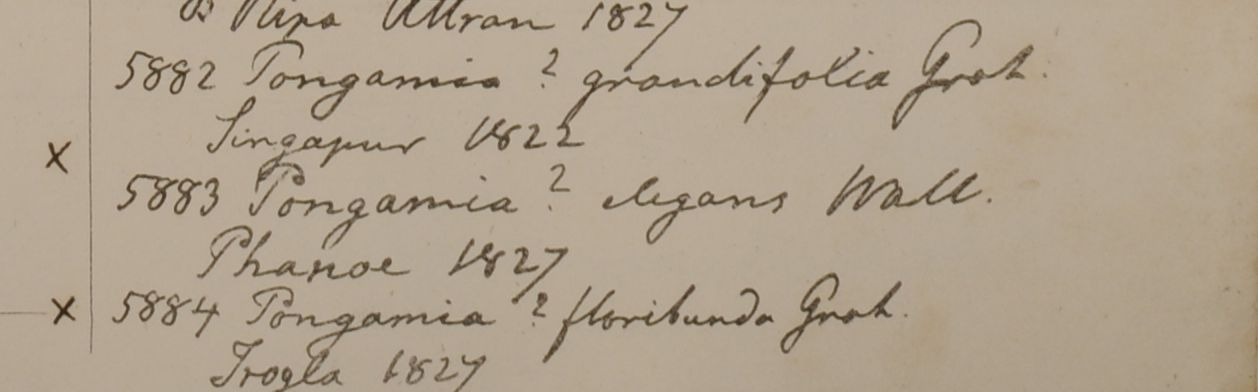 B Ripa Attran 1827
5882 Pongamia ? grandifolia Grah.
Singapur 1822
5883 Pongamia ? elegans Wall.
Phanoe 1827
5884 Pongamia ? floribunda Grah.
Trogla 1827